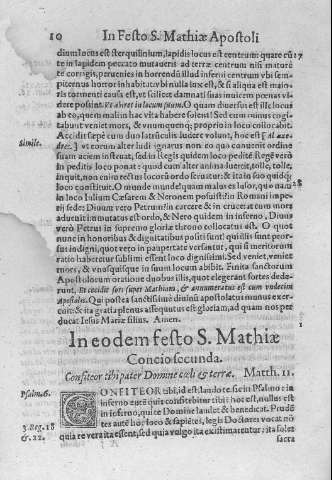 10 In Festo S. Mathiæ Apostoli
dium locus est sterquilinium, lapidis locus est centrum: quare cũ 17
te in lapidem peccato mutaueris ad terræ centrum nisi maturè
te corrigis, peruenies in horrendũ illud inferni centrum vbi sem-
piternus horror inhabitat, vbi nulla lux est, & si aliqua est maio-
ris tormenti causa est, vt scilicet damnati suas inuicem pœnas vi-
dere possint. Vt abiret in locum suum. O quam diuersus est ille locus
ab eo, quem malim hac vita habere solent! Sed eum minus cogi-
tabunt veniet mors, & vnumquemq; proprio in loco collocabit.
Simile. Accidit sæpè cum duo latrúculis ludere volunt, hoc est
vt eorum alter ludi ignarus non eo quo conuenit ordine
suam aciem instruat, sed in Regis quidem loco pedité, Regé verò
in peditis loco ponat: quod cum alter animaduertit, tolle, tolle,
inquit, non enim rectus locorũ ordo seruatur: & ita in suo quidq;
loco constituit. O munde munde! quam malus es lusor, quo namq; 18
in loco Iulium Cæsarem & Neronem posuisti? in Romani imperij
sede: Diuum verò Petrum? in carcere & in cruce: at cum mors
aduenit immutatus est ordo, & Nero quidem in inferno, Diuus
verò Petrus in supremo gloriæ throno collocatus est. O quot
nunc in honoribus & dignitatibus positi sunt! qui illis sunt pror-
sus indigni, quot verò in paupertate versantur, qui si meritorum
ratio haberetur sublimi essent loco dignissimi. Sed veniet, veniet
mors, & vnusquisque in suum locum abibit. Finita sanctorum
Apostolorum oratione duobus illis, quot elegerant sortes dede-
runt. Et cecidit sors super Mathiam, & annumeratus est cum vndecim
Apostolis. Qui postea sanctissimè diuini apostolatus munus exer-
cuit: & ita gratia plenus assequutus est gloriam, ad quam nos per-
ducat Iesus Mariæ filius. Amen.
In eodem festo S. Mathiæ 1
Concio secunda.
Confiteor tibi pater Domine cœli & terræ. Matth. 11.
Psalm. 6. CONFITEOR tibi, id est, laudo te, sic in Psalmo: in
inferno autem quis confitebitur tibi? hoc est, nullus est
in inferno, qui te Domine laudet & benedicat. Prudẽ
3. Reg. 18 tes autẽ hoc loco & sapiẽtes, legis Doctores vocat nõ
& 22. quia re vera ita essent, sed quia vulgo ita existimarentur; ita solet
sacra